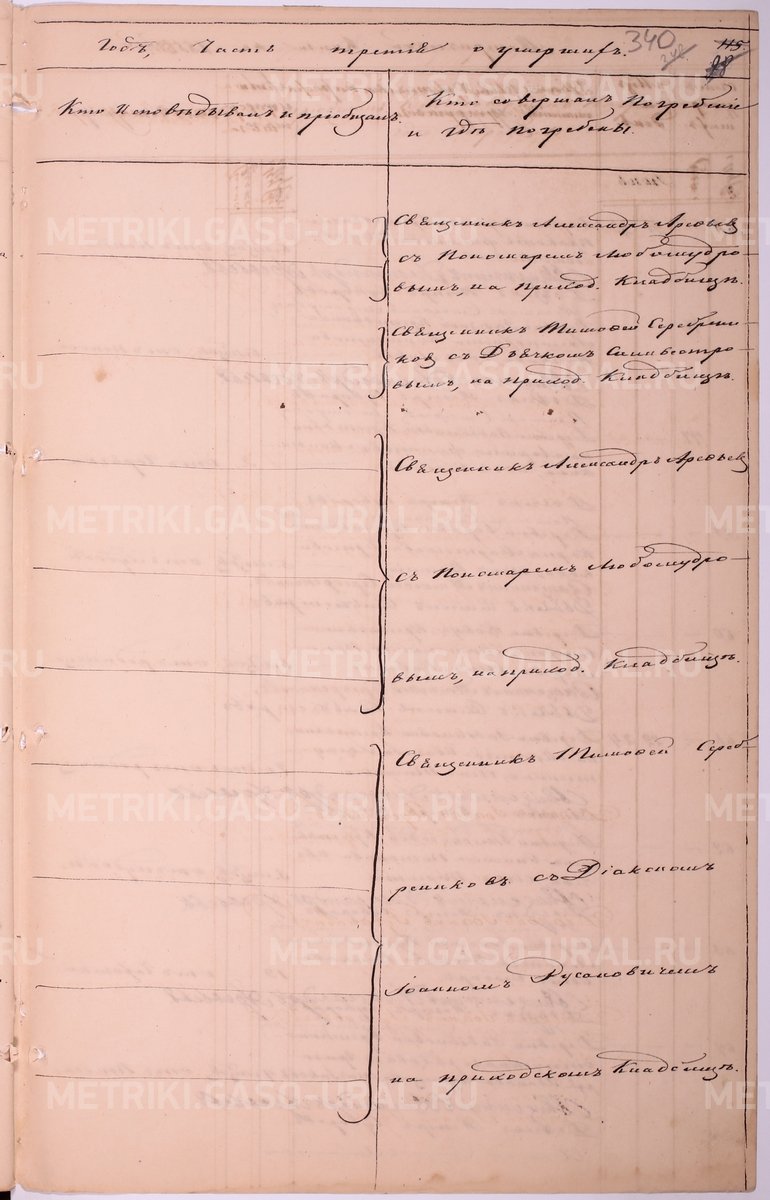 Годъ, Часть третія о умершихъ.
340
115.
Кто исповѣдывалъ и пріобщалъ.
Кто совершалъ погребеніе
и гдѣ погребены.
Священникъ Александръ Арефьев
съ Пономаремъ Любомудро-
вымъ, на приход. Кладбищѣ.
Священникъ Тимофей Серебрени-
ков съ Дьячкомъ Сильвестро-
вымъ, на приход. Кладбищѣ.
Священникъ Александръ Арефьев
съ Пономаремъ Любомудро-
вымъ, на приход. Кладбищѣ.
Священникъ Тимофей Сереб-
рениковъ съ Діакономъ
Іоанномъ Русановичемъ
на приходскомъ Кладбищѣ.
METRIKI.GASO-URAL.RU